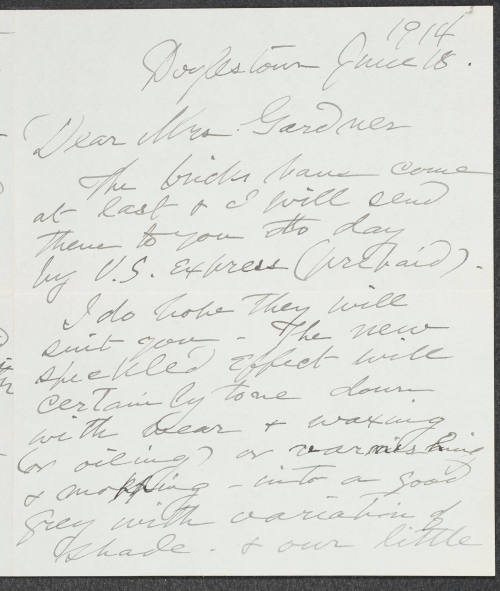 1914
Doylestown June 18.
Dear Mrs Gardner
The bricks have come
at last & I will send
them to you to day
by U.S. Express (prepaid).
I do hope they will
suit you - The new
speckled effect will
certainly tone down
with wear & waxing
(or oiling) or varnishing
& mopping - into a good
grey with variation of
shade. & our little